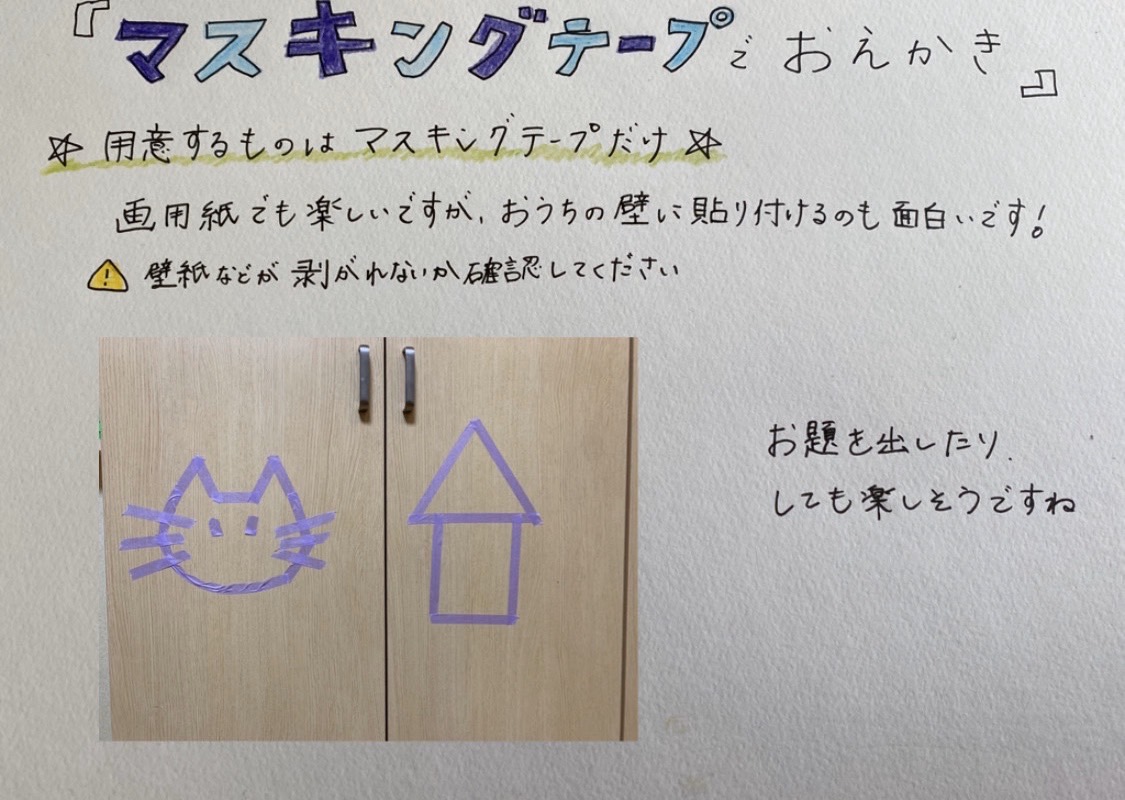 『マスキングテープでおえかき』
☆ 用意するものはマスキングテープだけ ☆
画用紙でも楽しいですが、おうちの壁に貼り付けるのも面白いです!
⚠ 壁紙などが剥がれないか確認してください
お題を出したり、
しても楽しそうですね